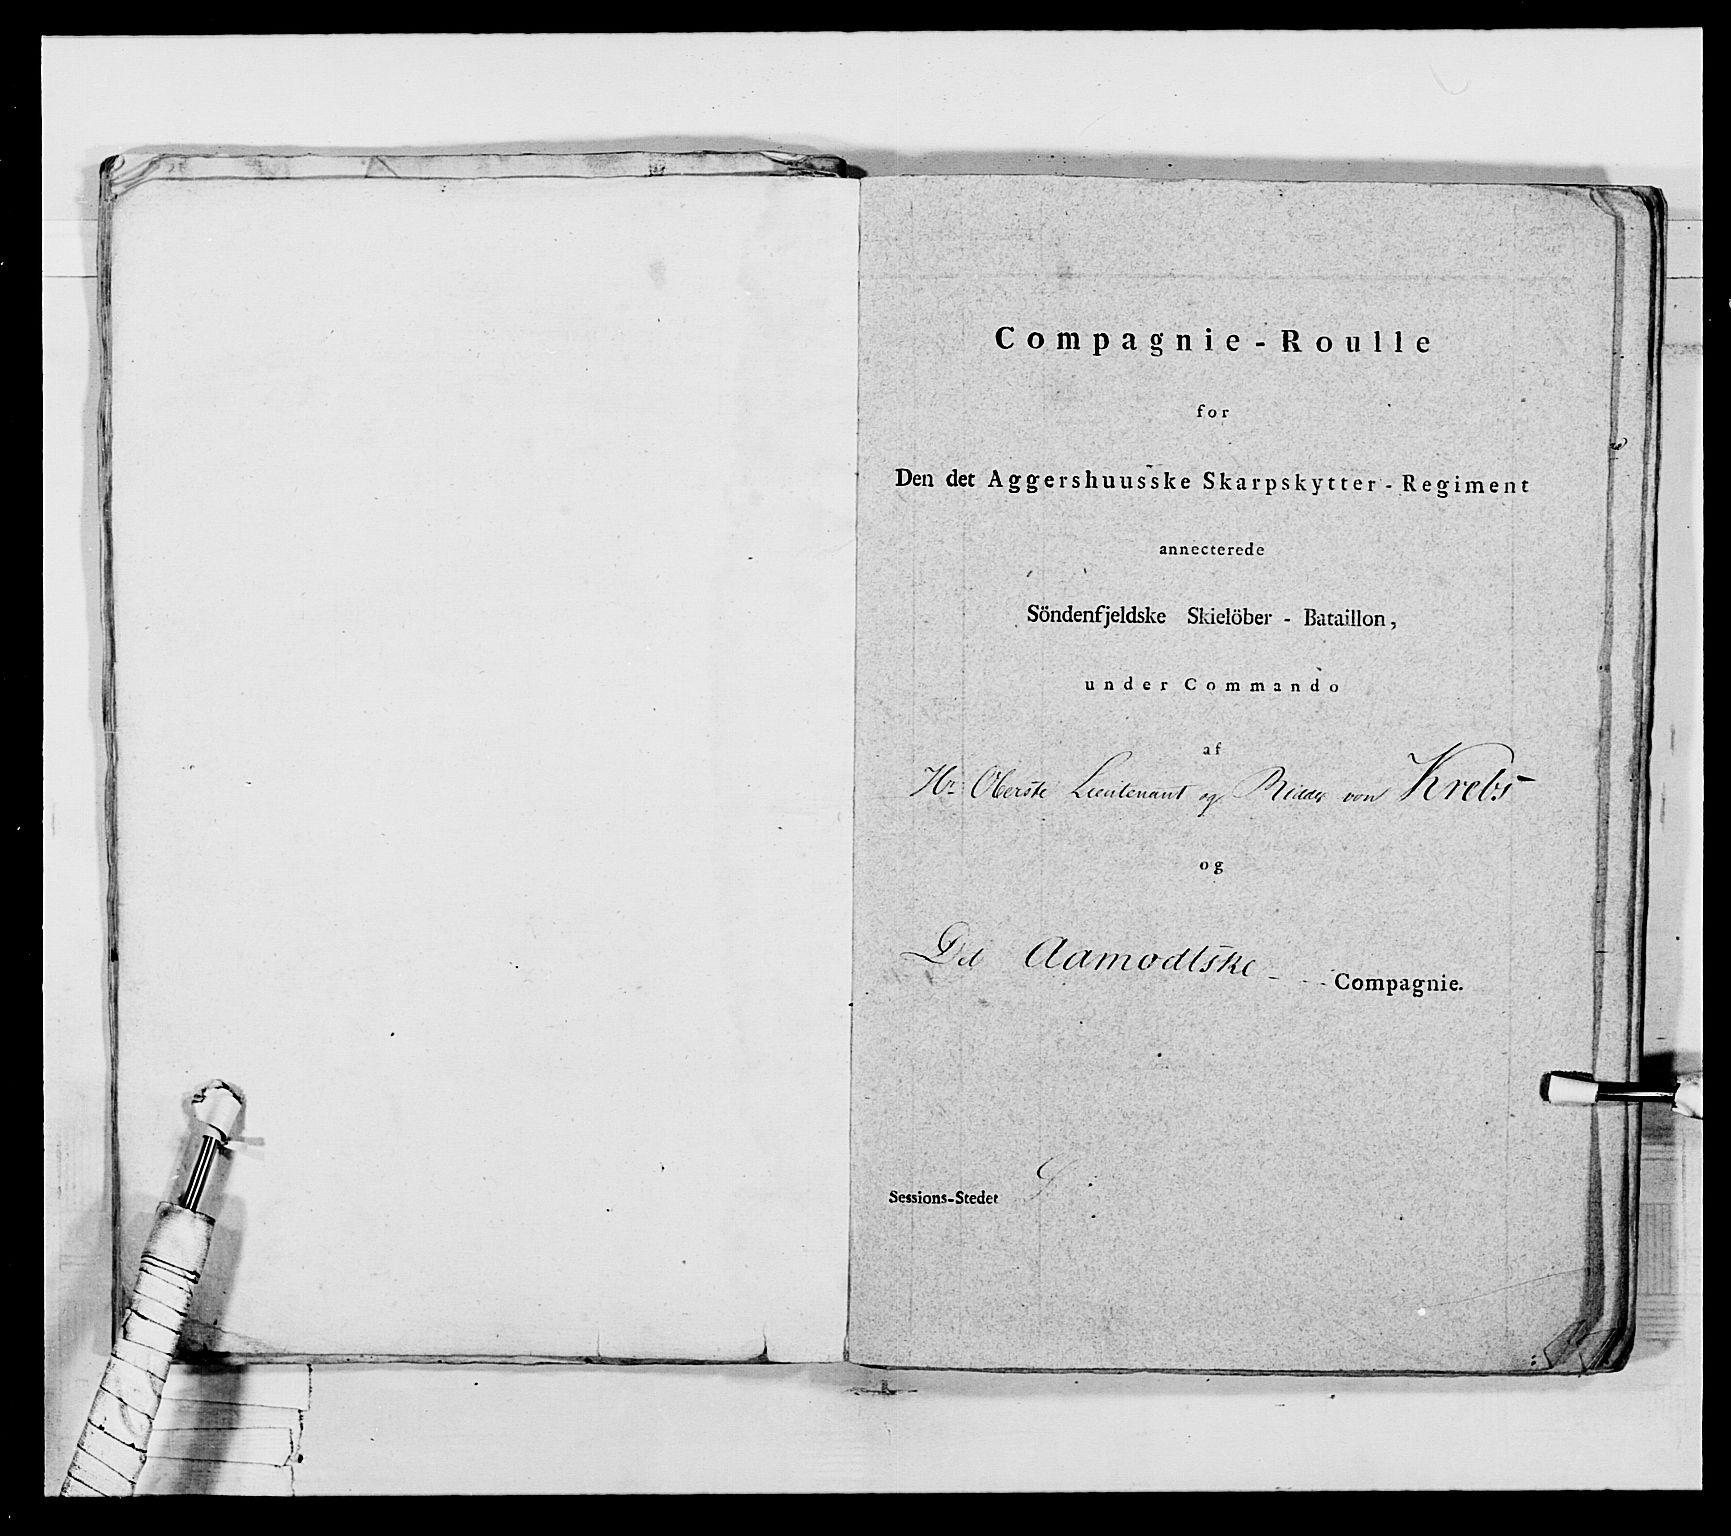 Compagnie-Roulle
for
Den det Aggershuusske Skarpskytter-Regiment
annecterede
Söndenfjeldske Skielöber-Bataillon,
under Commando
af
Hr Oberste Lieutenant og Ridder von Krebs
og
Det Aamodtske - Compagnie.
Sessions-Stedet